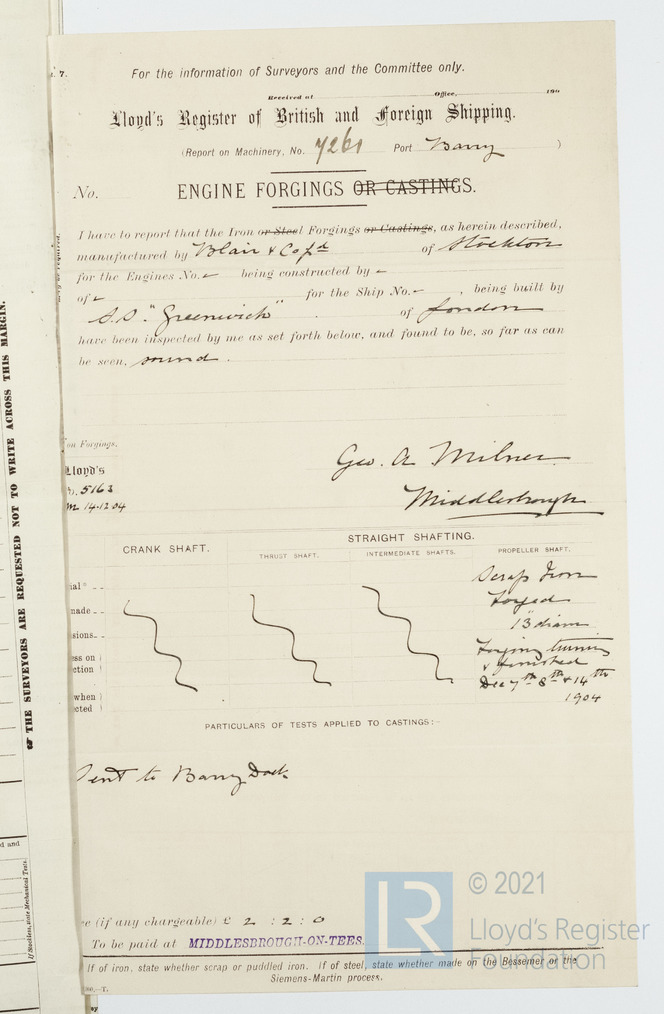 7.
For the information of Surveyors and the Committee only.
Received at Office, 190
Lloyd's Register of British and Foreign Shipping.
(Report on Machinery, No. 7261 Port Barry )
No. ENGINE FORGINGS OR CASTINGS.
I have to report that the Iron or Steel Forgings or Castings, as herein described,
manufactured by Blair & Co Ld of Stockton
for the Engines No. being constructed by
of for the Ship No. , being built by
S.S. "Greenwich" of London
have been inspected by me as set forth below, and found to be, so far as can
be seen, sound.
on Forgings.
Geo. A. Milner
Lloyd's
5163
14.12.04
Middlesbrough
STRAIGHT SHAFTING.
CRANK SHAFT. THRUST SHAFT. INTERMEDIATE SHAFTS. PROPELLER SHAFT.
ial* Scrap Iron
made Forged
sions 13" diam
ess on ) Forging turning
ction ) & finished
when ) Dec 7th 8th & 14th
cted ) 1904
PARTICULARS OF TESTS APPLIED TO CASTINGS:-
Sent to Barry Dock
ee (if any chargeable) £ 2 : 2 : 0
To be paid at MIDDLESBROUGH-ON-TEES.
If of iron, state whether scrap or puddled iron. If of steel, state whether made on the Bessemer or the
Siemens-Martin process.
THE SURVEYORS ARE REQUESTED NOT TO WRITE ACROSS THIS MARGIN.
If Steel see, state Mechanical Tests.
LR
© 2021
Lloyd's Register
Foundation